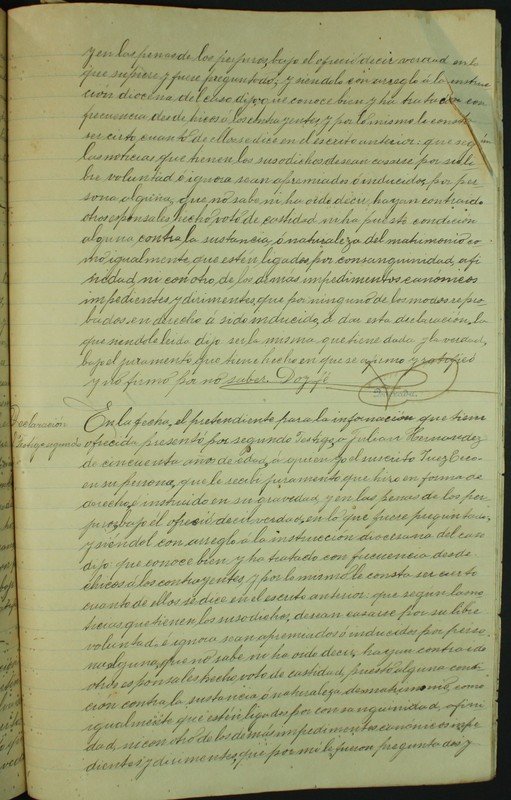 y en las penas de los perjuros, bajo el ofreció decir verdad en lo
que supiere y fuere preguntado; y siendolo con arreglo á la instruc-
ción diocesna, del caso dijo: que conoce bien y ha tratado con
frecuencia desde chicos á los contrayentes y por lo mismo le consta
ser cierto cuanto de ellos se dice en el escreto anterior: que según
las noticias que tienen los susodichos desean casarse por su li-
bre voluntad é ignora sean apremiados ó inducidos por per-
sona alguna, que no sabe ni ha oido decir, hayan contraido
otros esponsales, hecho voto de castidad ni ha puesto condición
alguna contra la sustancia, ó naturaleza del matrimonio co-
mo igualmente que estén ligados por consanguinidad, afi-
nidad, ni con otro de los demás impedimentos canónicos
impedientes y dirimentes, que por ninguno de los modos repro-
bados en derecho á sido inducido, á dar esta declaración, la
que siendole leida dijo ser la misma que tiene dada y la verdad,
bajo el juramento que tiene hecho en que se afirmó y ratificó
y no firmó por no saber. Doy fé
Declaración
Testigo segundo
En la fecha, el pretendiente para la información que tiene
ofrecida presentó por segundo testigo, a Julian Hernandez
de cincuenta anos de edad, á quien yo el suscrito Juez Ecco.
en su persona, que le recibí juramento que hizo en forma de
derecho, é instruido en su gravedad, y en las penas de los per-
juros, bajo el ofreció decir verdad, en lo que fuere preguntado,
y siendol con arreglo á la instrución diocesana del caso
dijo: que conoce bien y ha tratado con frecuencia desde
chicos á los contrayentes y por lo mismo le consta ser cierto
cuanto de ellos se dice en el escreto anterior: que segun las no-
ticias que tienen los susodichos, desean casarse por su libre
voluntad é ignora sean apremiados ó inducidos por perso-
na alguna, que no sabe ni ha oido decir, hayan contraido
otros esponsales hecho, voto de castidad, puesto alguna condi-
ción contra la sustancia, ó naturaleza del matrimonio, como
igualmente que estén ligados por consanguinidad, afini-
dad, ni con otro de los demás impedimentos canónicos impe-
dientes y derimentes, que por mi le fueron preguntados y